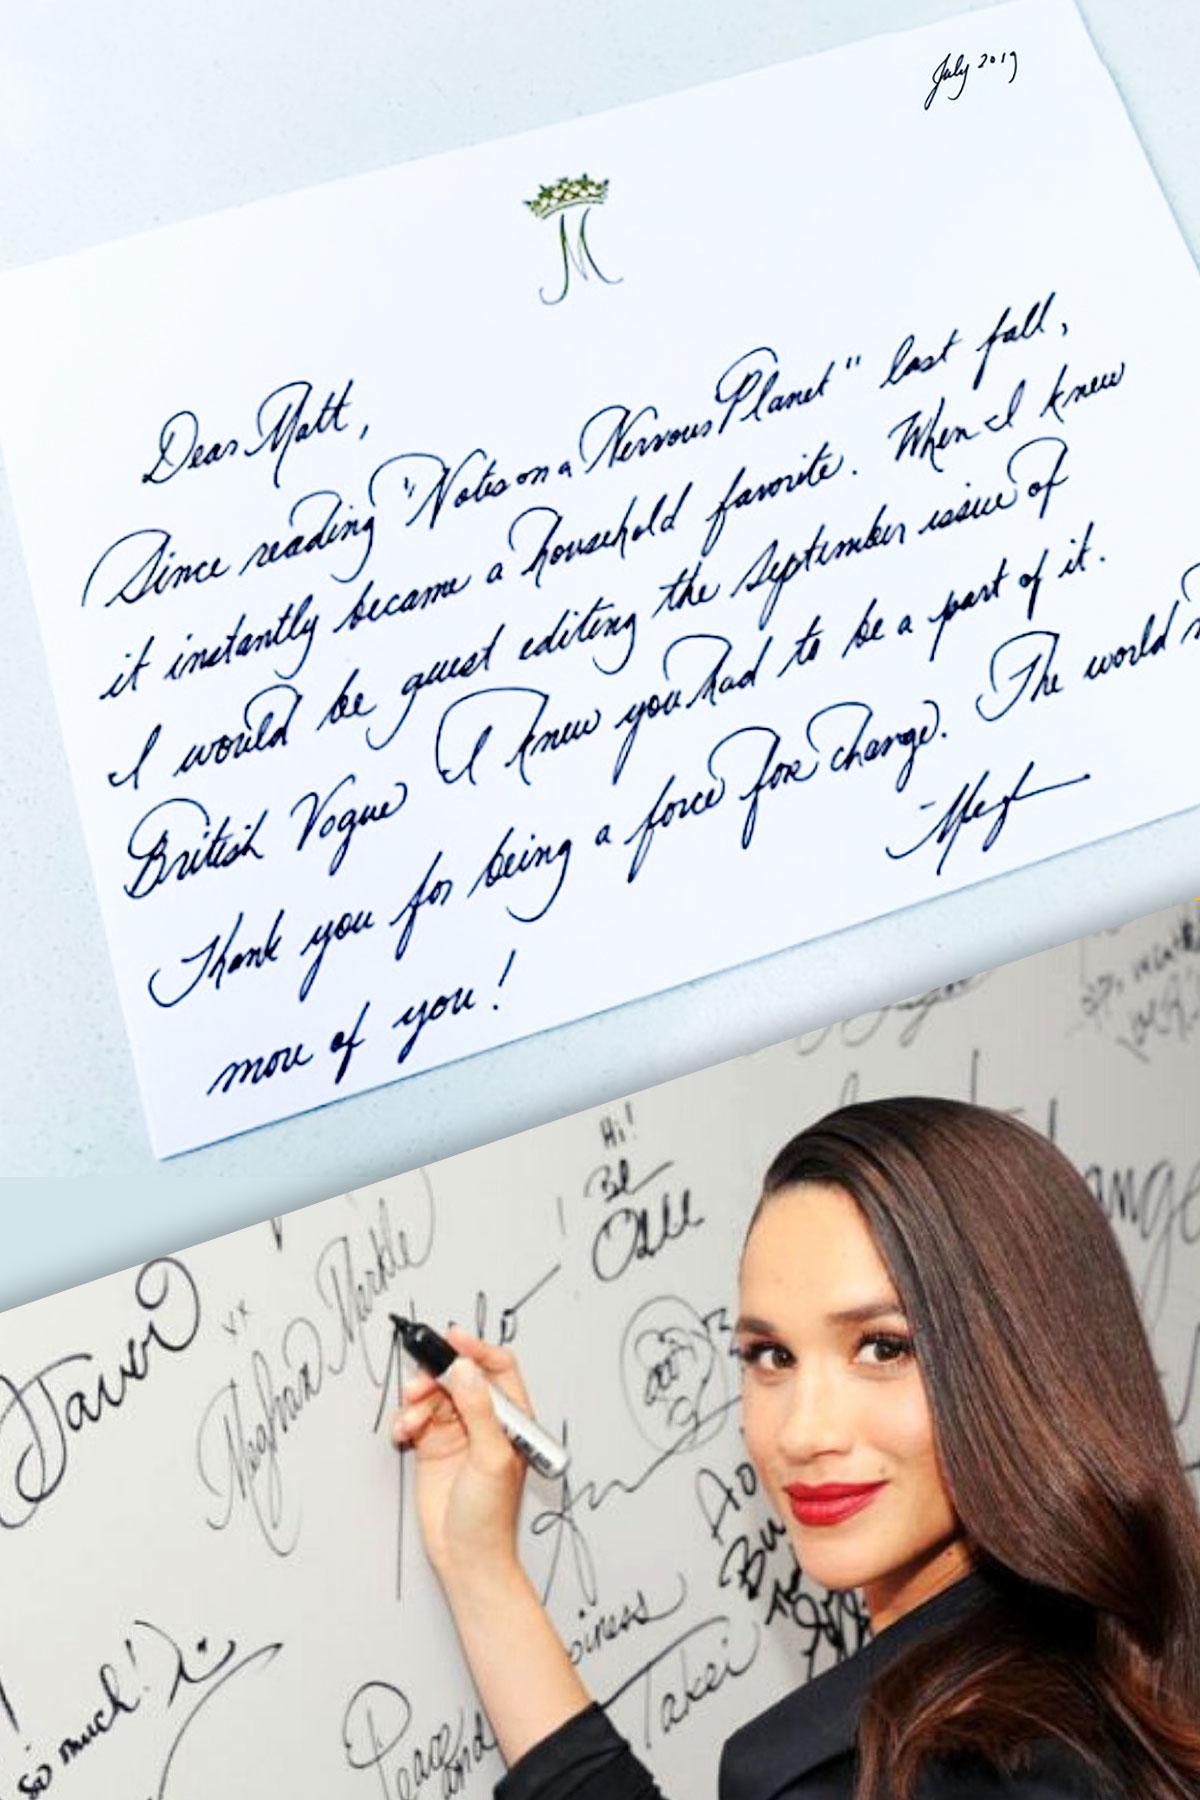 July 2019
M
Dear Matt,
Since reading "Notes on a Nervous Planet" last fall,
it instantly became a household favorite. When I knew
I would be guest editing the September issue of
British Vogue I knew you had to be a part of it.
Thank you for being a force for change. The world
more of you!
-Megh
Hi!
Meghan Markle
Peace
and
Takei
so much!